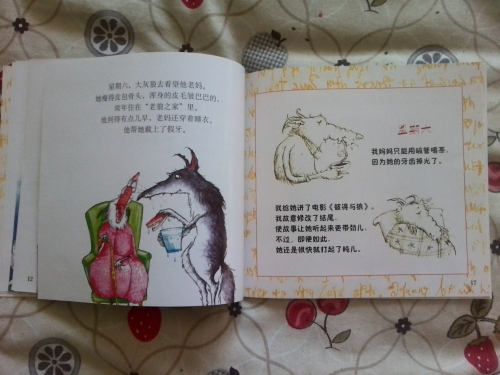 星期六，大灰狼去看望他老妈。
她瘦得皮包骨头，浑身的皮毛皱巴巴的，
常年住在“老狼之家”里。
他到得有点儿早，老妈还穿着睡衣。
他帮她戴上了假牙。
12
星期六
我妈妈只能用吸管喝茶，
因为她的牙齿掉光了。
我给她讲了电影《彼得与狼》。
我故意修改了结尾，
使故事让她听起来更带劲儿。
不过，即便如此，
她还是很快就打起了盹儿。